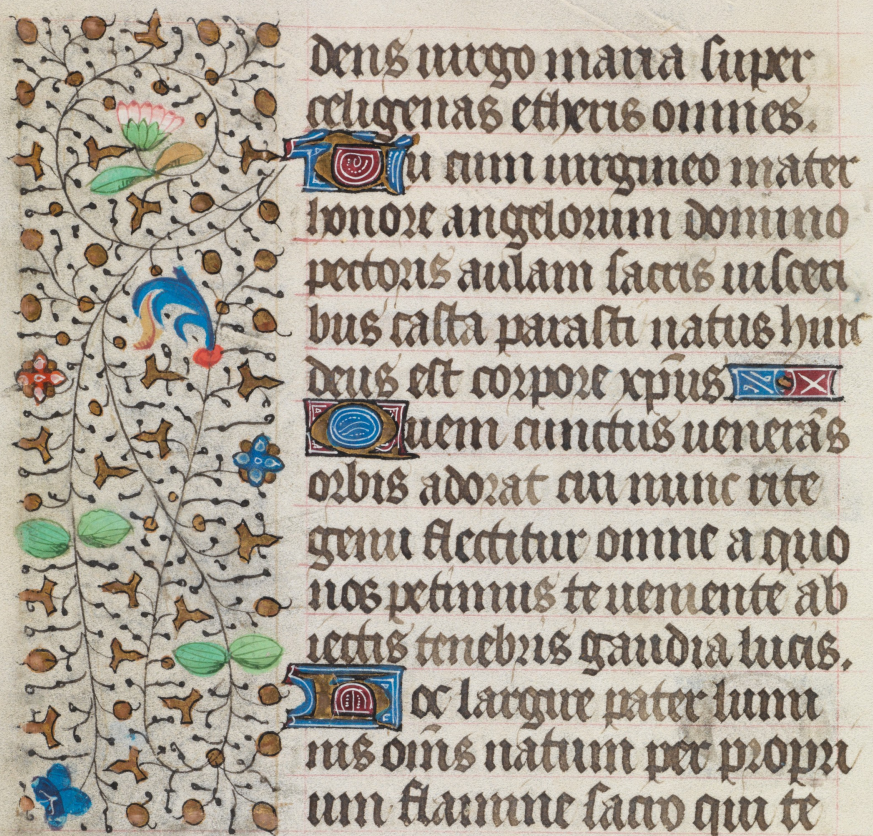 dens uirgo maria super
celigenas etheris omnes.
Tu cum uirgineo mater
honore angelorum domino
pectoris aulam sacris uisceri
bus casta parasti natus hinc
deus est corpore xp̄us
Quem cunctus uenerās
orbis adorat cui nunc rite
genu flectitur omne a quo
nos petimus te ueniente ab
iectis tenebris gaudia lucis.
Hoc largire pater lumi
nis om̄s natum per propri
um flamine sacro qui te